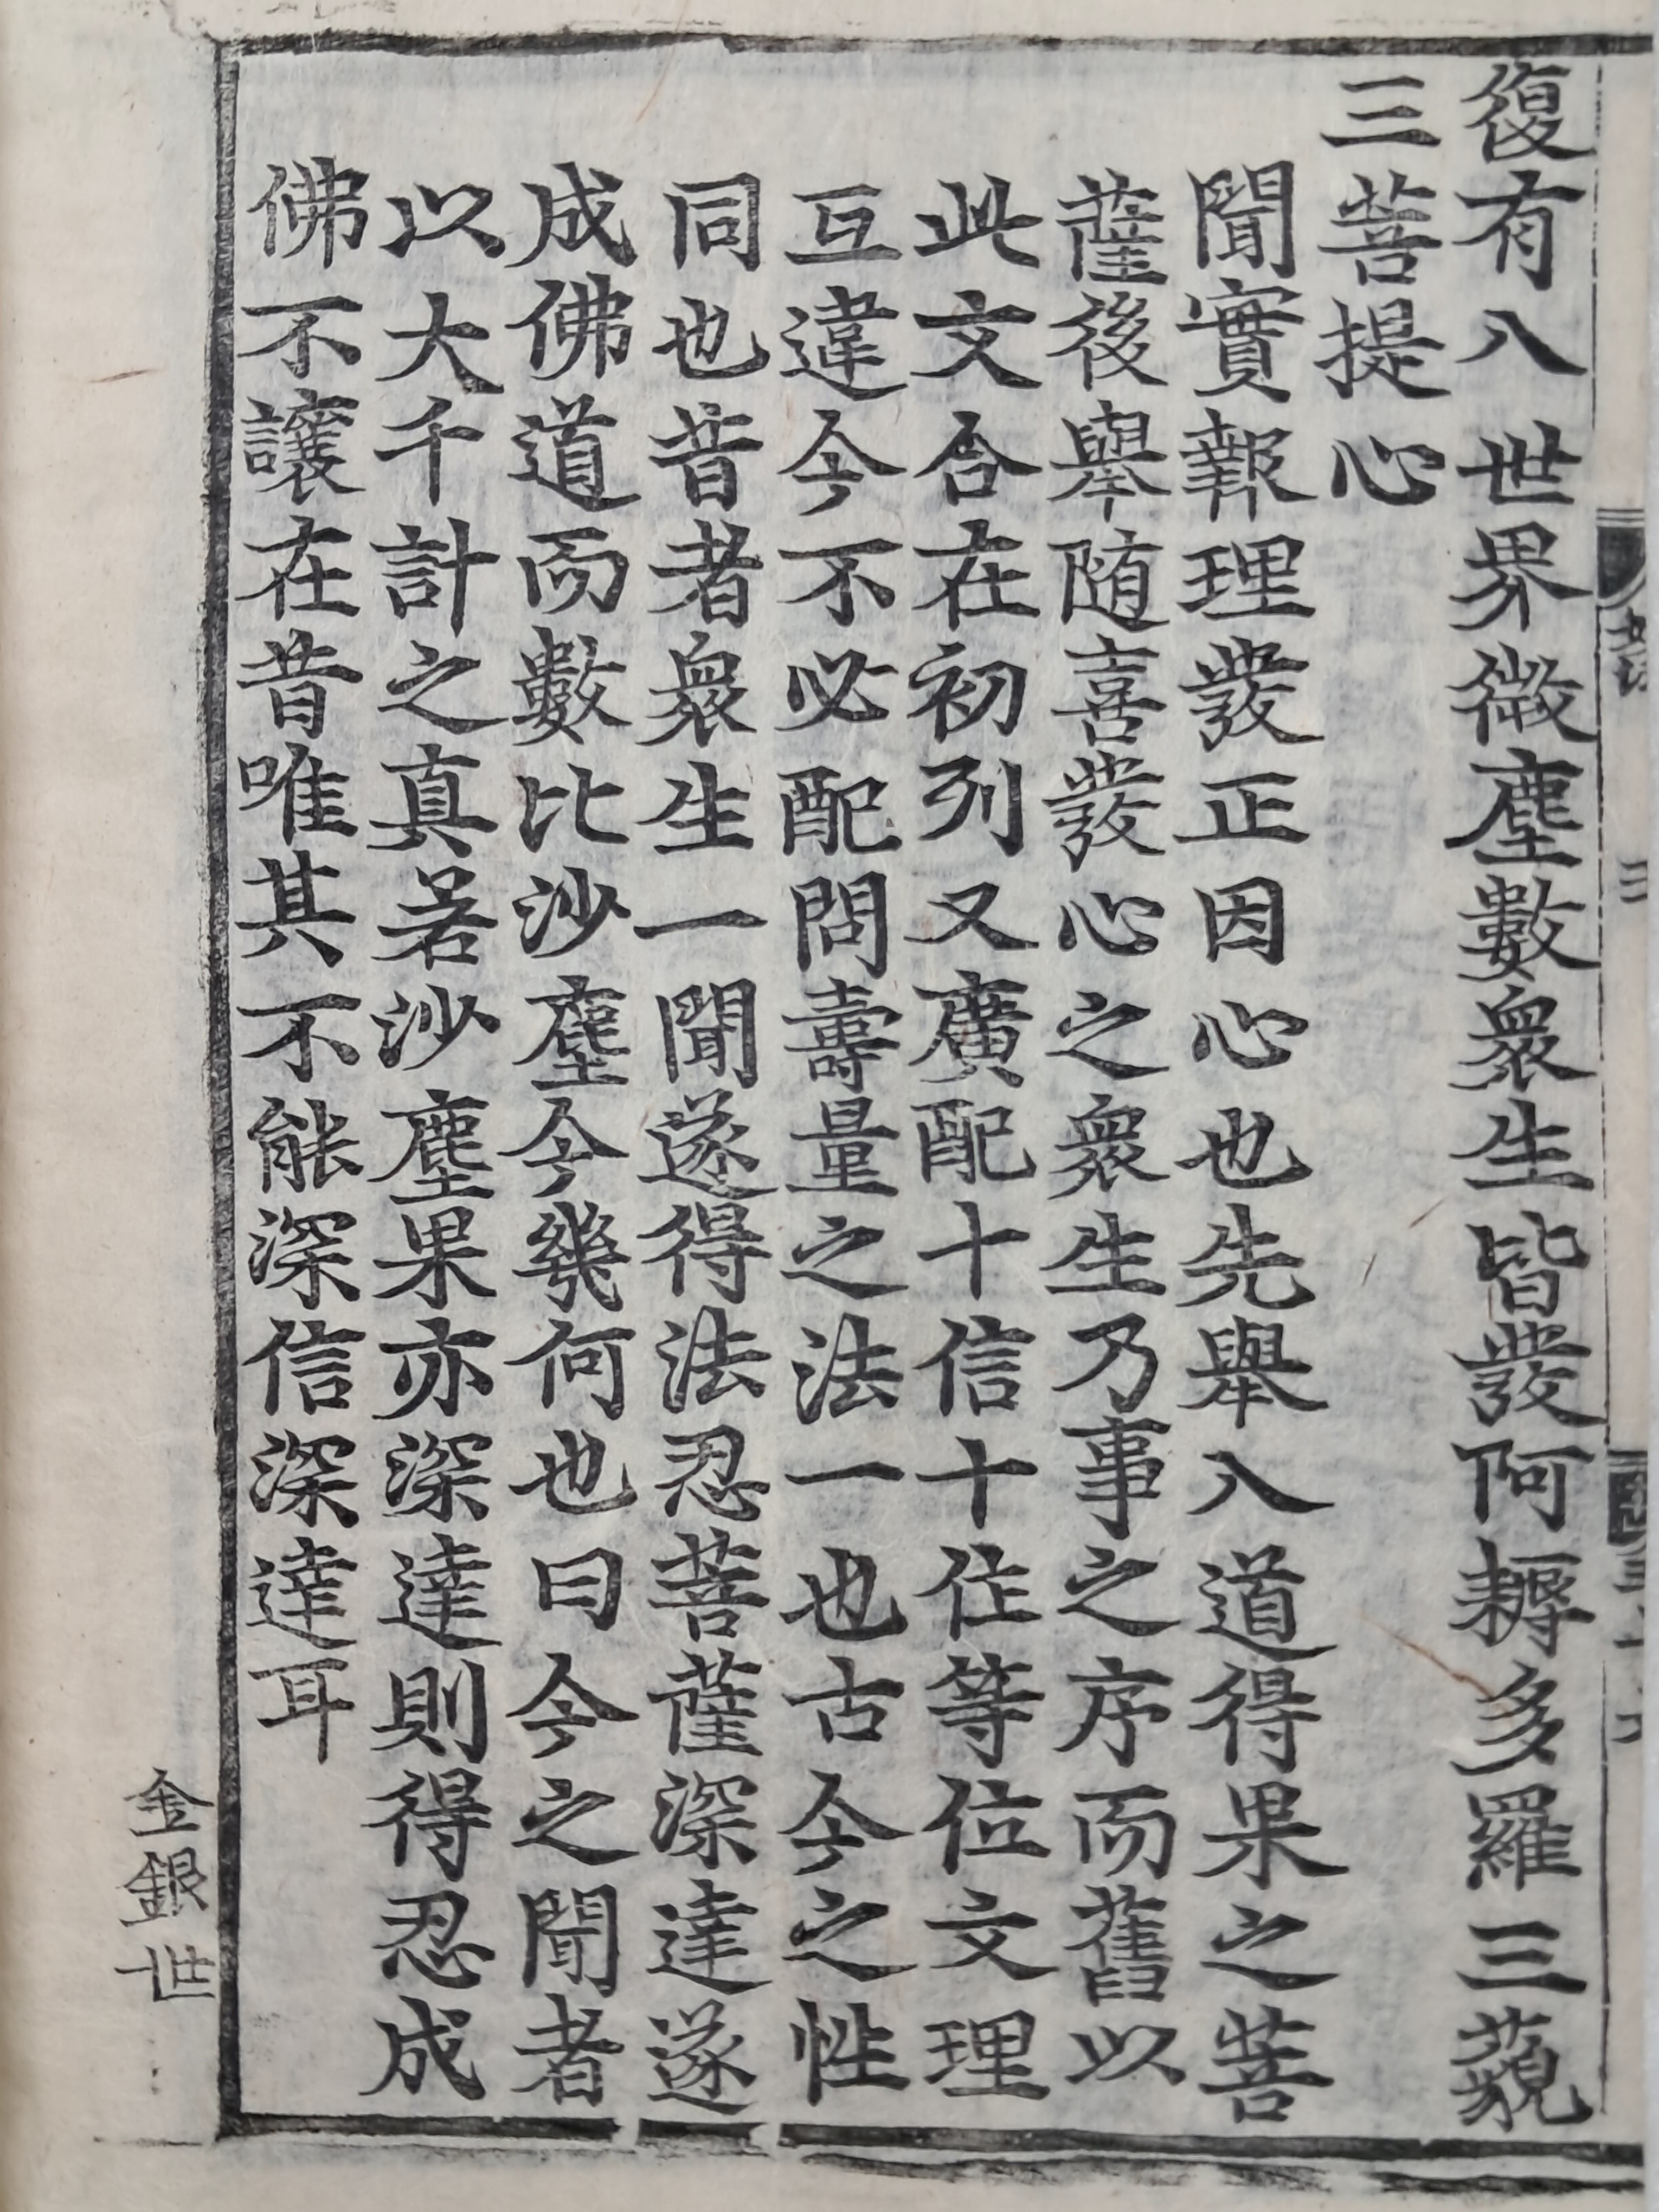 復有八世界微塵數衆生皆發阿耨多羅三藐
三菩提心
聞實報理發正因心也先舉八道得果之菩
薩後舉随喜發心之衆生乃事之序而舊以
此文合在初列又廣配十信十住等位文理
互違今不必配問壽量之法一也古今之性
同也昔者衆生一聞遂得法忍菩薩深達遂
成佛道而數比沙塵今幾何也曰今之聞者
以大千計之真若沙塵果亦深達則得忍成
佛不讓在昔唯其不能深信深達耳
金銀世